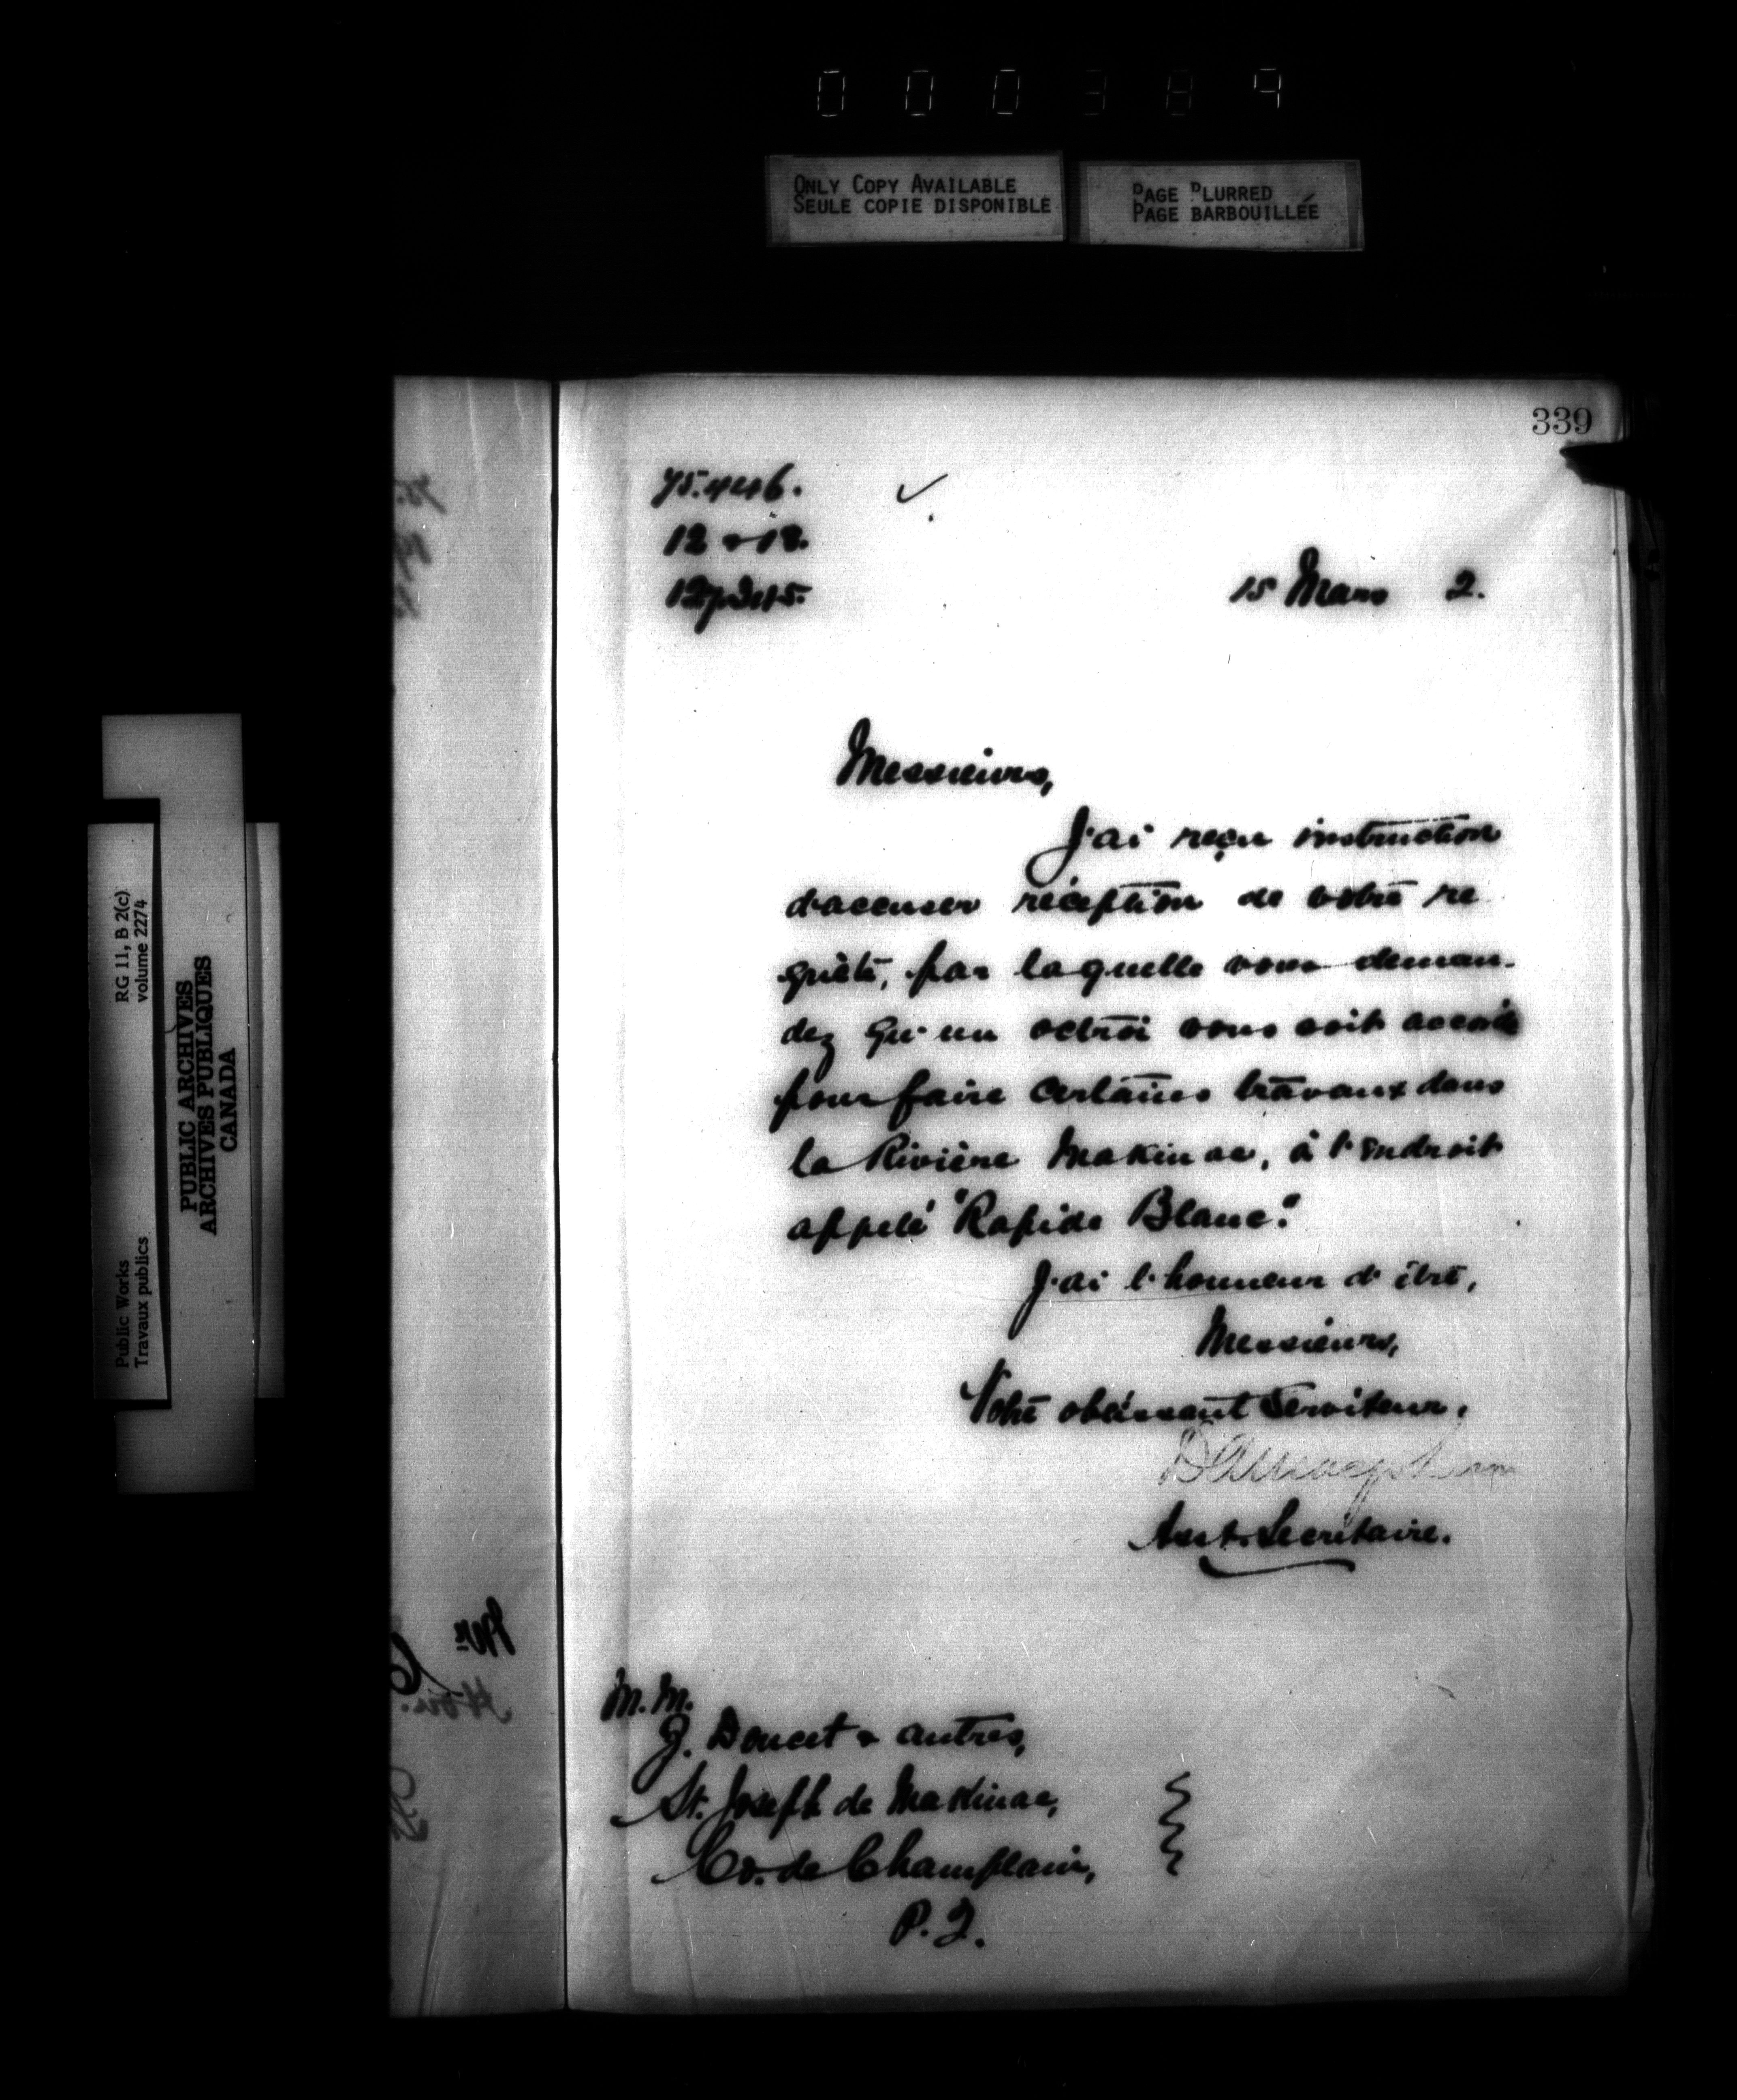 000389
ONLY COPY AVAILABLE
SEULE COPIE DISPONIBLE
PAGE BLURRED
PAGE BARBOUILLÉE
RG 11, B 2(c)
volume 2274
Public Works
Travaux publics
PUBLIC ARCHIVES
ARCHIVES PUBLIQUES
CANADA
339
12 & 18.
15 Mars 2.
Messieurs,
J'ai reçu instruction
d'accuser réception de votre re
quête, par laquelle vous deman-
dez qu'un octroi vous soit accordé
pour faire certains travaux dans
la Rivière Makinac, à l'endroit
appelé "Rapide Blanc".
J'ai l'honneur d'être,
Messieurs,
Votre obéissant Serviteur.
Asst. Secrétaire.
M. M.
J. Doucet & autres,
St. Joseph de Makinac,
Co. de Champlain,
P. Q.